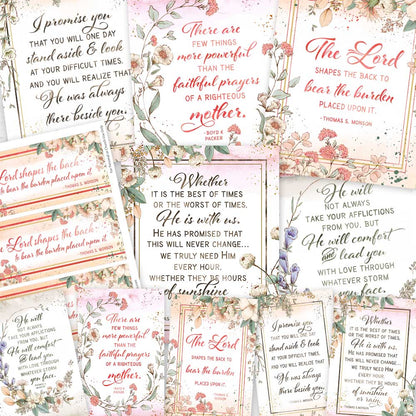 I promise you
THAT YOU WILL ONE DAY
stand aside & look
AT YOUR DIFFICULT TIMES,
AND YOU WILL REALIZE THAT
He was always
there beside you.
THERE ARE
FEW THINGS
more powerful
THAN THE
faithful prayers
OF A RIGHTEOUS
mother.
- BOYD K
PACKER
The Lord
SHAPES THE BACK TO
bear the burden
PLACED UPON IT.
- THOMAS S. MONSON
Lord shapes the back
to bear the burden placed upon it.
- THOMAS S. MONSON
Lord shapes the back
to bear the burden placed upon it.
- THOMAS S. MONSON
Whether
IT IS THE BEST OF TIMES
OR THE WORST OF TIMES,
He is with us.
HE HAS PROMISED THAT
THIS WILL NEVER CHANGE...
WE TRULY NEED HIM
EVERY HOUR,
WHETHER THEY BE HOURS
of sunshine
He will
NOT ALWAYS
TAKE YOUR AFFLICTIONS
FROM YOU, BUT
He will comfort
and lead you
WITH LOVE THROUGH
WHATEVER STORM
YOU FACE.
He will
NOT ALWAYS
TAKE YOUR AFFLICTIONS
FROM YOU, BUT
He will comfort
& lead you
WITH LOVE THROUGH
WHATEVER STORM
YOU FACE.
THERE ARE
FEW THINGS
more powerful
THAN THE
faithful prayers
OF A RIGHTEOUS
mother.
The Lord
SHAPES THE BACK TO
bear the burden
PLACED UPON IT.
I promise you
THAT YOU WILL ONE DAY
stand aside & look
AT YOUR DIFFICULT TIMES,
AND YOU WILL REALIZE THAT
He was always
there beside you.
Whether
IT IS THE BEST OF TIMES
OR THE WORST OF TIMES,
He is with us.
HE HAS PROMISED THAT
THIS WILL NEVER CHANGE...
WE TRULY NEED HIM
EVERY HOUR,
WHETHER THEY BE HOURS
of sunshine
or rain.